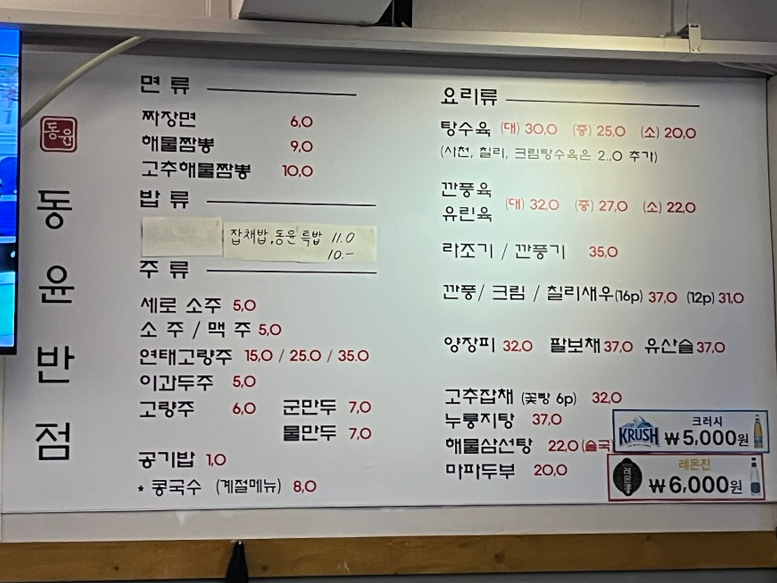 동윤
동윤반점
면 류
짜장면 6,0
해물짬뽕 9,0
고추해물짬뽕 10,0
밥 류
잡채밥,동윤 특밥 11.0
10.-
주 류
세로 소주 5,0
소 주 / 맥 주 5,0
연태고량주 15,0 / 25.0 / 35.0
이과두주 5,0
고량주 6,0 군만두 7,0
물만두 7,0
공기밥 1,0
* 콩국수 (계절메뉴) 8,0
요리류
탕수육 (대) 30,0 (중) 25,0 (소) 20,0
(사천, 칠리, 크림탕수육은 2.,0 추가)
깐풍육
유린육 (대) 32,0 (중) 27,0 (소) 22,0
라조기 / 깐풍기 35,0
깐풍/ 크림 / 칠리새우(16p) 37,0 (12p) 31,0
양장피 32,0 팔보채 37,0 유산슬 37,0
고추잡채 (꽃빵 6p) 32,0
누룽지탕 37,0
해물삼선탕 22,0 (술국)
마파두부 20,0
KRUSH 크러시 ₩5,000원
레몬진 레몬진 ₩6,000원